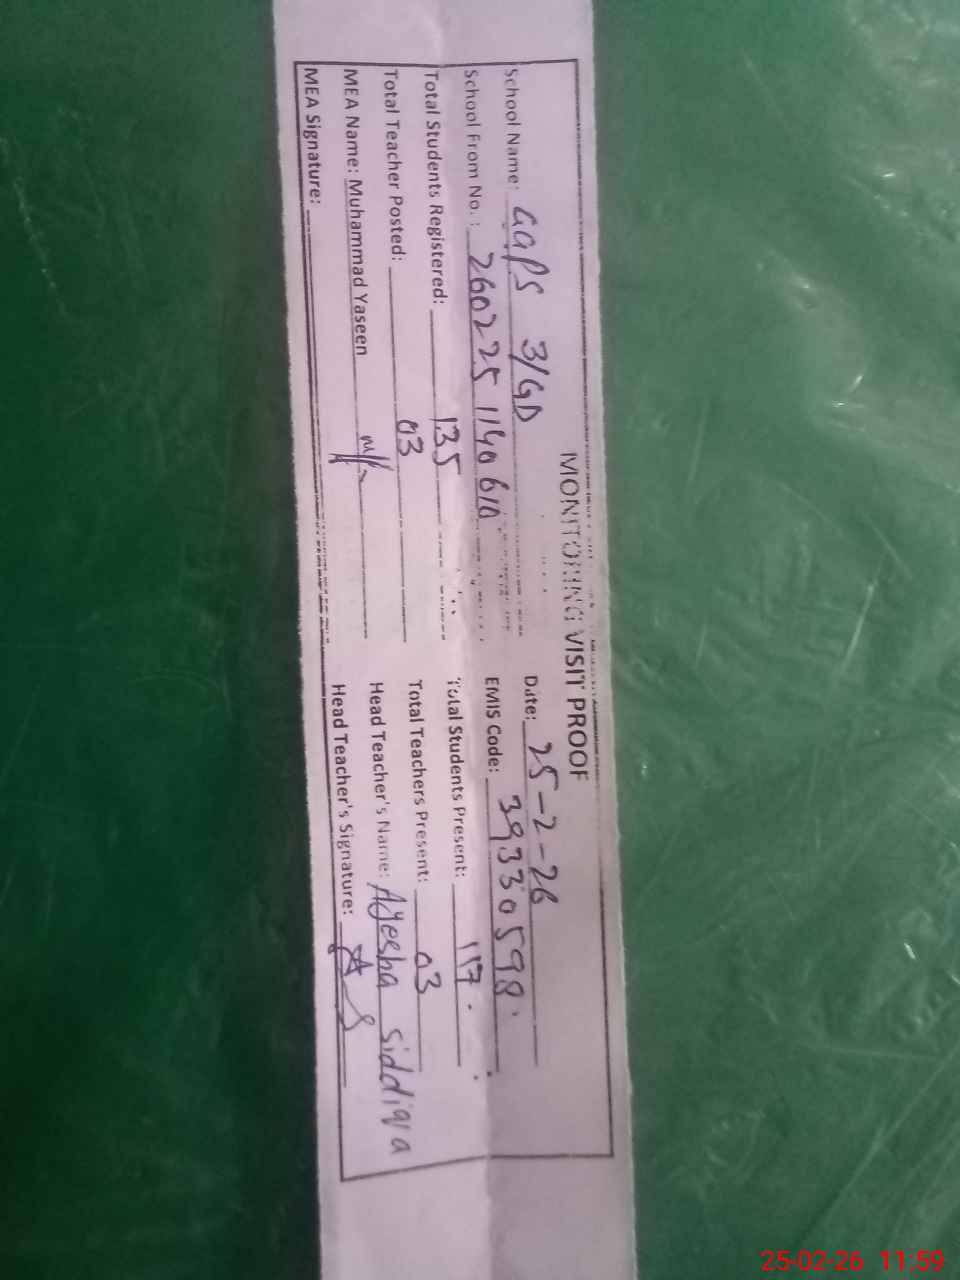 MONITORING VISIT PROOF
School Name: GGPS 3/GD Date: 25-2-26
School From No. : 2602251140610 EMIS Code: 39330598
Total Students Registered: 135 Total Students Present: 117
Total Teacher Posted: 03 Total Teachers Present: 03
MEA Name: Muhammad Yaseen Head Teacher's Name: Ayesha Siddiqa
MEA Signature: Head Teacher's Signature:
25-02-26 11:59